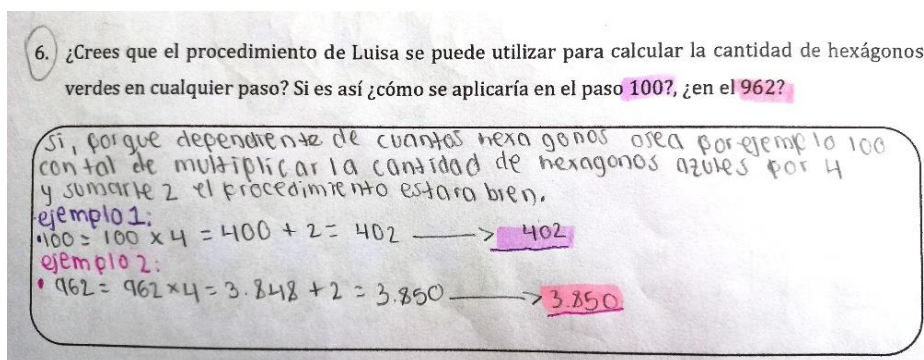 6. ¿Crees que el procedimiento de Luisa se puede utilizar para calcular la cantidad de hexágonos
verdes en cualquier paso? Si es así ¿cómo se aplicaría en el paso 100?, ¿en el 962?
Si, porque dependiente de cuantos hexagonos osea por ejemplo 100
con tal de multiplicar la cantidad de hexagonos azules por 4
y sumarle 2 el procedimiento estara bien.
ejemplo 1:
•100 = 100 x 4 = 400 + 2 = 402 → 402
ejemplo 2:
• 962 = 962 x 4 = 3.848 + 2 = 3.850 → 3.850